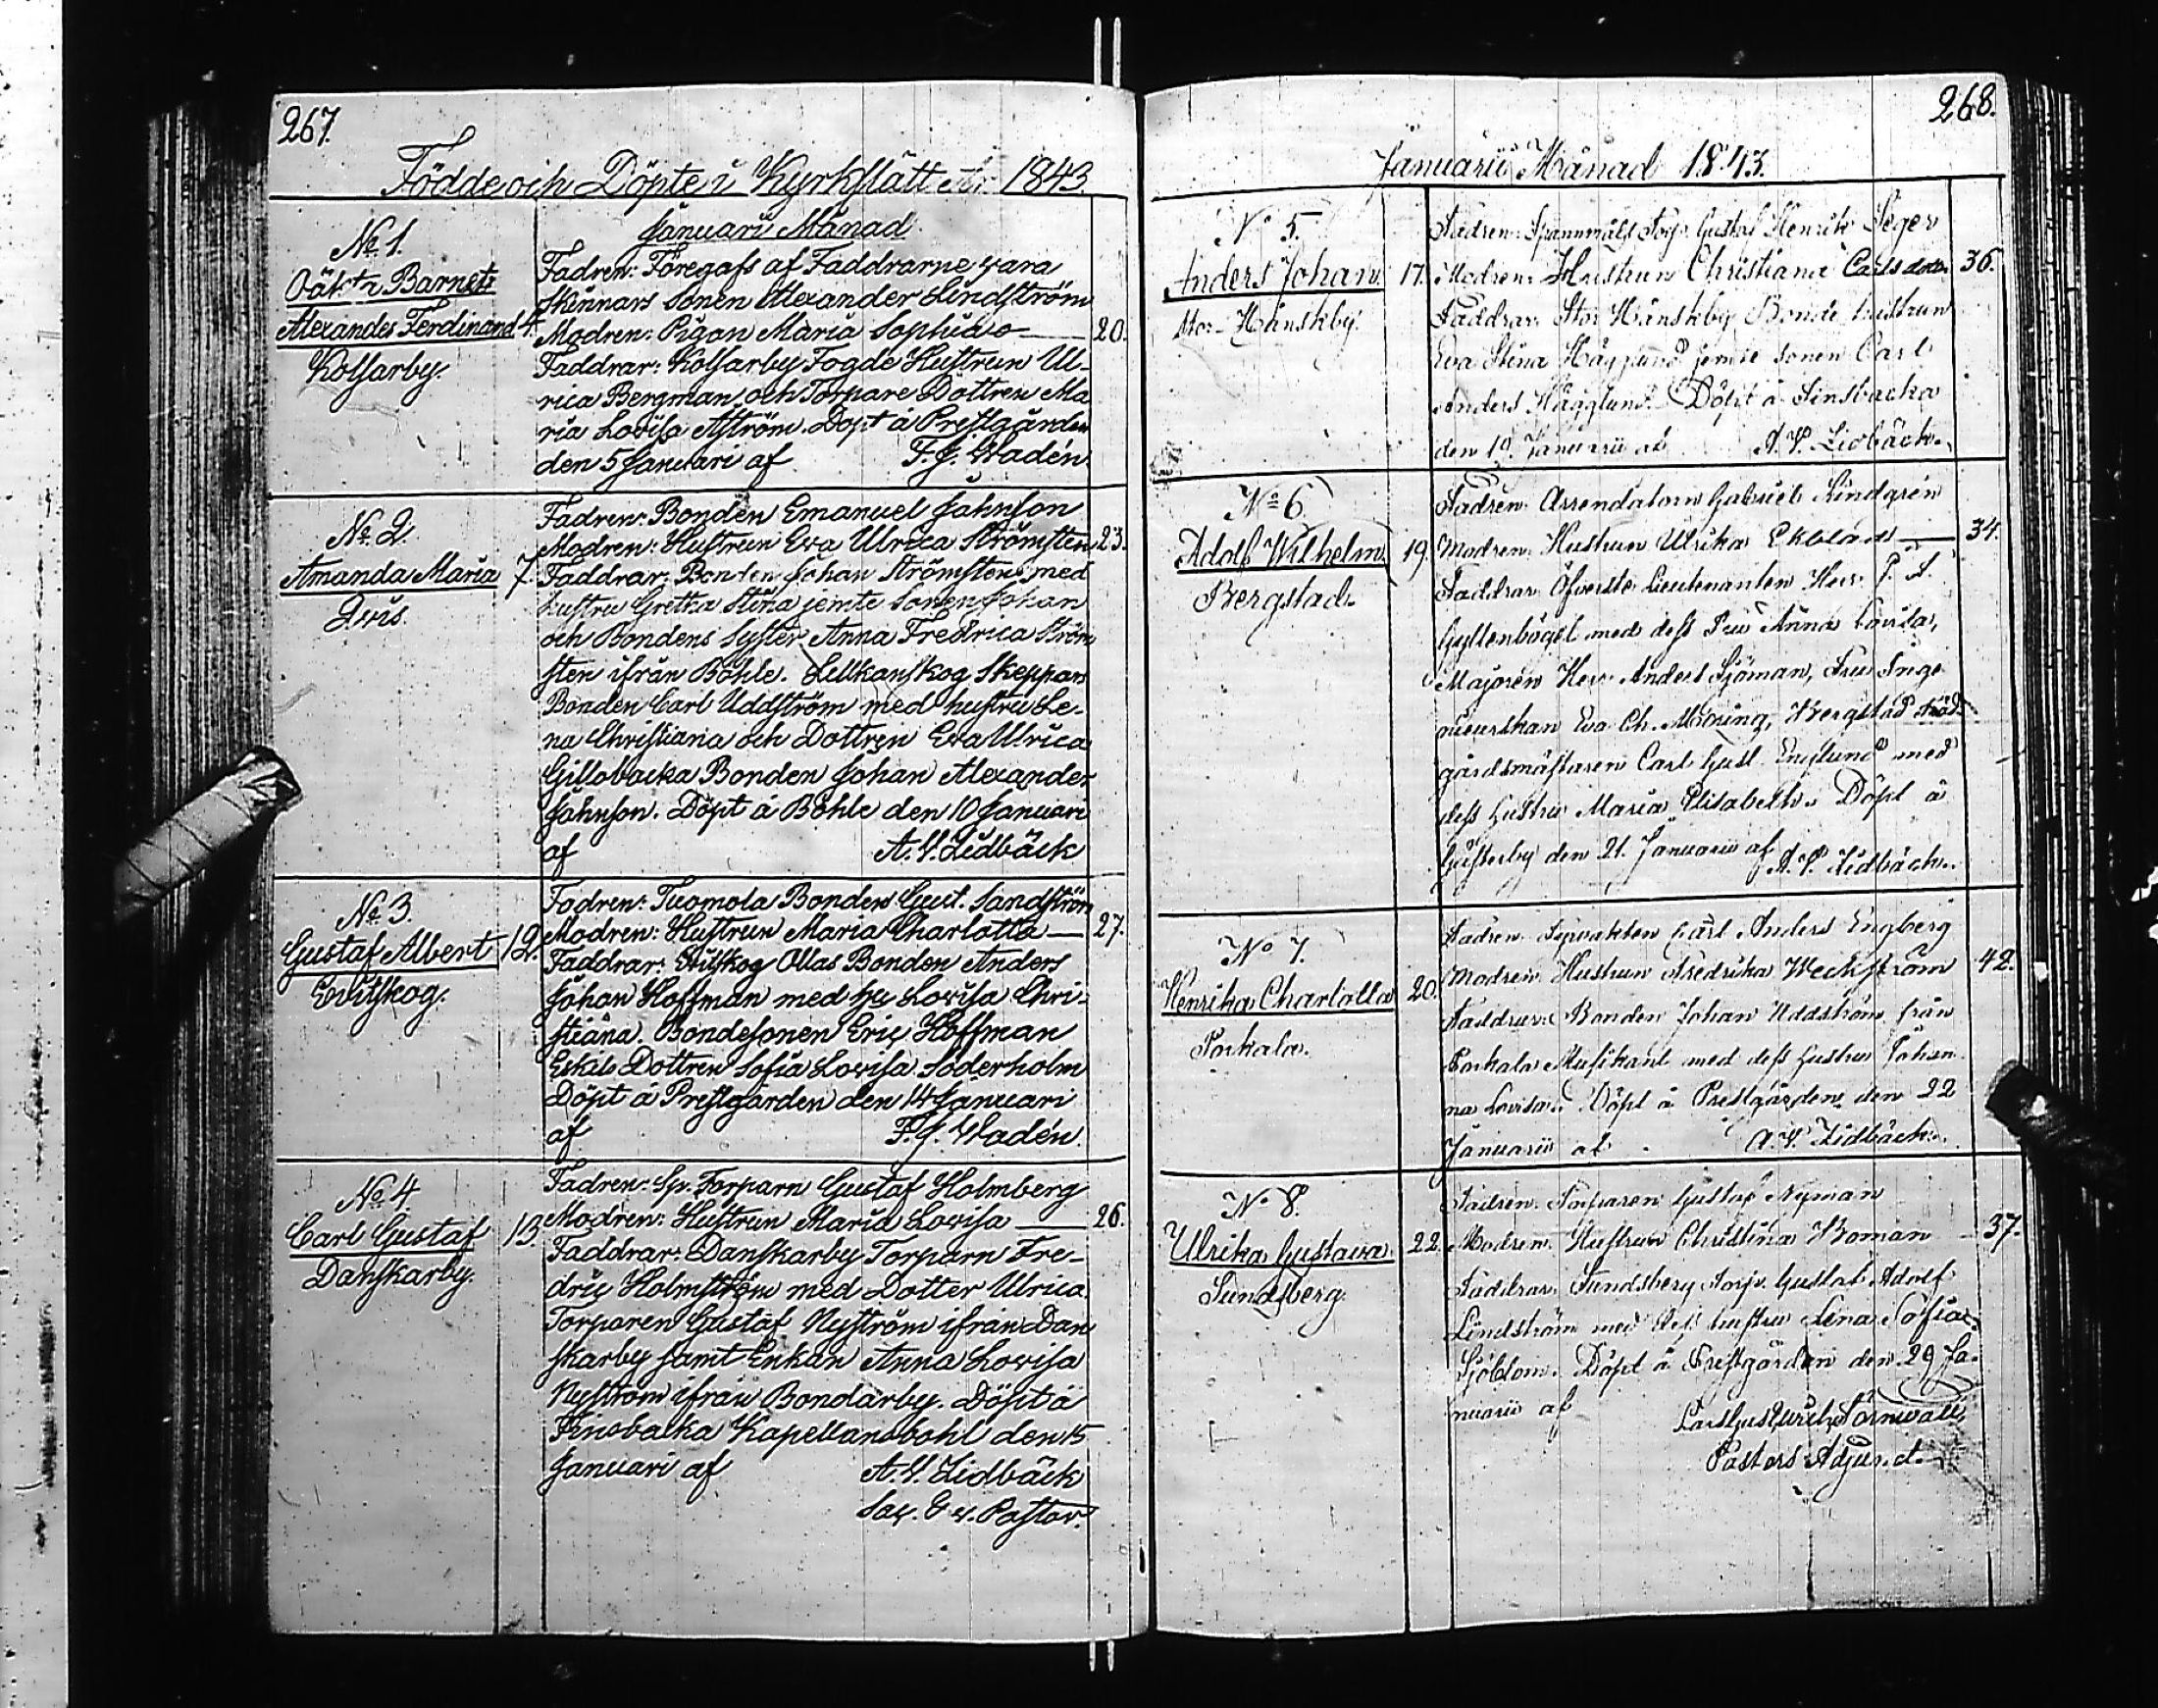 267.
Födde och Döpte i Kyrkslätt År 1843.
Januarii Månad.
No 1.
Oäkta Barnet
Alexander Ferdinand 4.
Kolsarby.
Fadren: Föregafs af Faddrarne vara
Skinnars Sonen Alexander Lindström
Modren: Pigan Maria Sophia 20.
Faddrar: Kolsarby Fogde Hustrun Ul-
rica Bergman, och Torpare Dottren Ma
ria Lovisa Åström. Döpt å Prestgården
den 5 Januari af F. J. Wadén.
No 2.
Amanda Maria 7.
Qvis.
Fadren: Bonden Emanuel Jahnson
Modren: Hustrun Eva Ulrica Strömsten 23.
Faddrar: Bonden Johan Strömsten med
hustru Gretha Stina jemte Sonen Johan
och Bondens Syster Anna Fredrica Ström
sten ifrån Böhle. Lillkanskog Skeppars
Bonden Carl Uddström med hustru Le-
na Christiana och Dottren Eva Ulrica
Gillobacka Bonden Johan Alexander
Jahnson. Döpt å Böhle den 10 Januari
af A. V. Lidbäck
No 3.
Gustaf Albert 12.
Evitskog.
Fadren: Tuomola Bonden Gust. Sandström
Modren: Hustrun Maria Charlotta 27.
Faddrar: Evitskog Ollas Bonden Anders
Johan Hoffman med hu Lovisa Chri-
stiana. Bondesonen Eric Hoffman
Eskils Dottren Sofia Lovisa Söderholm
Döpt å Prestgården den 14 Januari
af F. J. Wadén.
No 4.
Carl Gustaf 13.
Danskarby.
Fadren: Sp. Torparn Gustaf Holmberg
Modren: Hustrun Maria Lovisa 26.
Faddrar: Danskarby Torparn Fre-
dric Holmström med Dotter Ulrica.
Torparen Gustaf Nyström ifrån Dan
skarby samt Enkan Anna Lovisa
Nyström ifrån Bondarby. Döpt å
Finsbacka Kapellansbohl den 15
Januari af A. V. Lidbäck
Sac. & v. Pastor.
268.
Januarii Månad 1843.
No 5.
Anders Johan 17.
Stor-Hänskby.
Fadren: Spannmåls Torp. Gustaf Henrik Seger
Modren: Hustrun Christiana Carlsdotter 36.
Faddrar: Stor Hänskby Bonde hustrun
Eva Stina Hägglund jemte Sonen Carl
Anders Hägglund. Döpt å Finsbacka
den 19 Januarii af A. V. Lidbäck.
No 6
Adolf Wilhelm 19.
Bergstad.
Fadren: Arrendatorn Gabriel Lindgrén
Modren: Hustrun Ulrika Ekblad 34.
Faddrar: Öfverste Lieutenanten Herr P. A.
Gyllenbögel med dess Fru Anna Lovisa,
Majoren Herr Anders Sjöman, Fru Inge
nieurskan Eva Ch. Bergstad träd
gårdsmästaren Carl Gust. Englund med
dess hustru Maria Elisabeth. Döpt å
Gesterby den 21. Januarii af A. V. Lidbäck.
No 7.
Henrika Charlotta 20.
Porkala.
Fadren: Fyrvakten Carl Anders Engberg
Modren: Hustrun Fredrika Weckström 42.
Faddrar: Bonden Johan Uddström från
Porkala Musikant med dess hustru Johan
na Lovisa. Döpt å Prestgården den 22
Januarii af A. V. Lidbäck.
No 8.
Ulrika Gustava 22.
Sundsberg.
Fadren: Torparen Gustaf Nyman
Modren: Hustrun Christina Broman 37.
Faddrar: Sundsberg Torp. Gustaf Adolf
Lindström med dess hustru Lena Sofia
Sjöblom. Döpt å Prestgården den 29 Ja-
nuarii af
Pastors Adjunct.